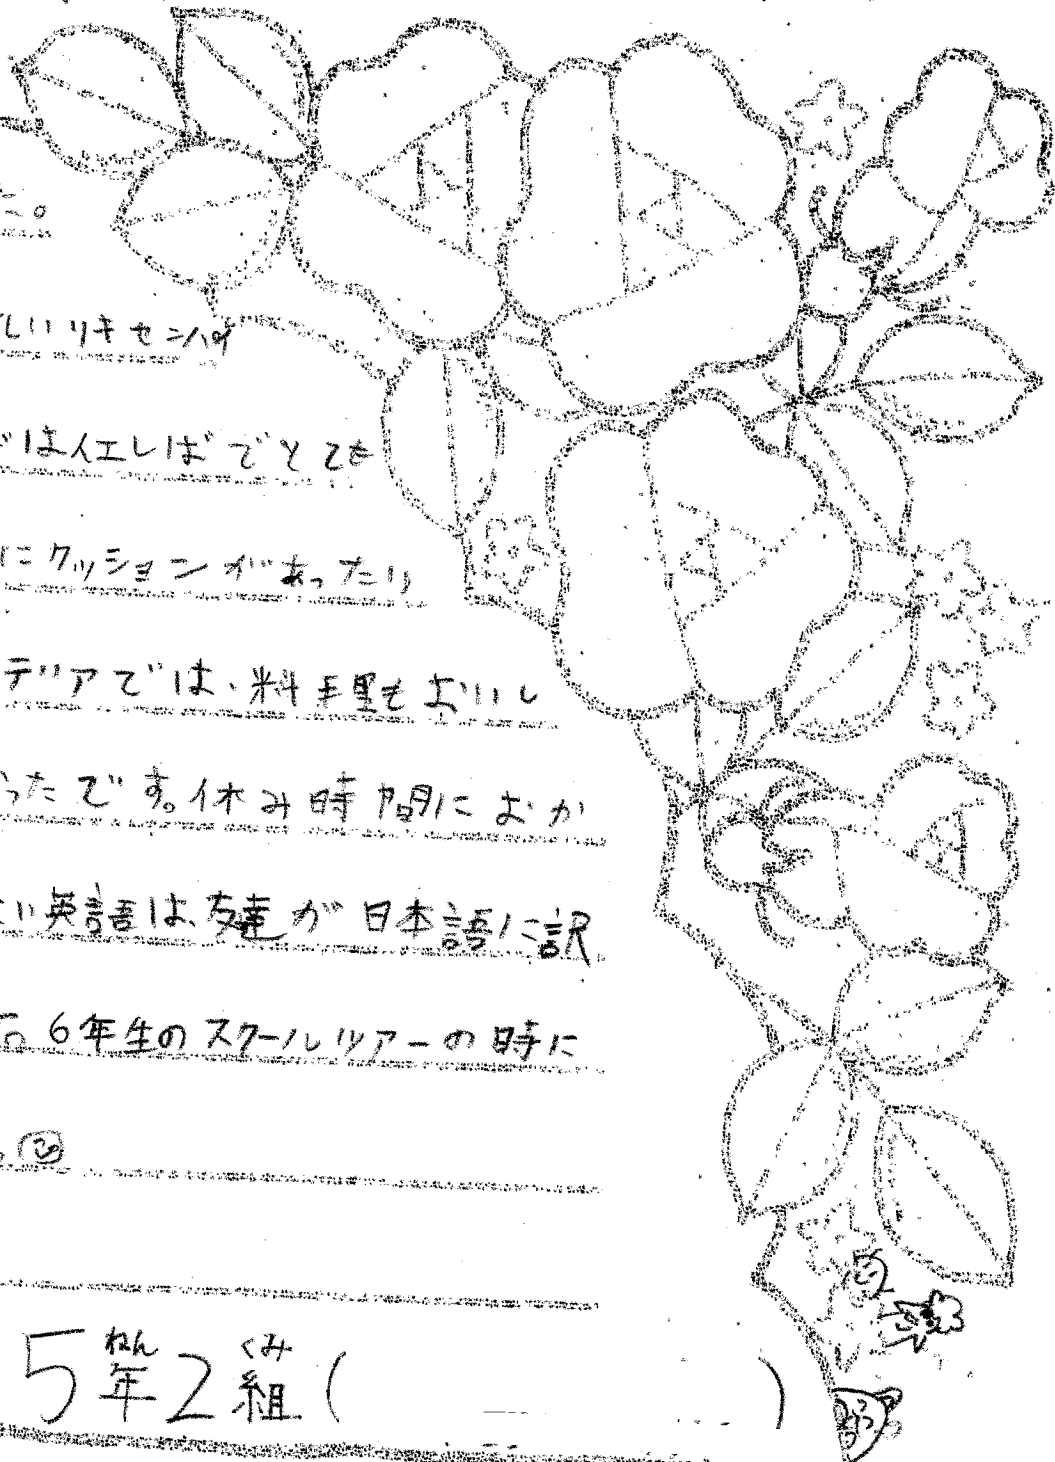 た。
しいリキセンパイ
は人工しばでとても
にクッションがあったり
テリアでは、料理もおいし
ったです。休み時間におか
い英語は、友達が日本語に訳
6年生のスクールツアーの時に
ねん くみ
5年2組( )